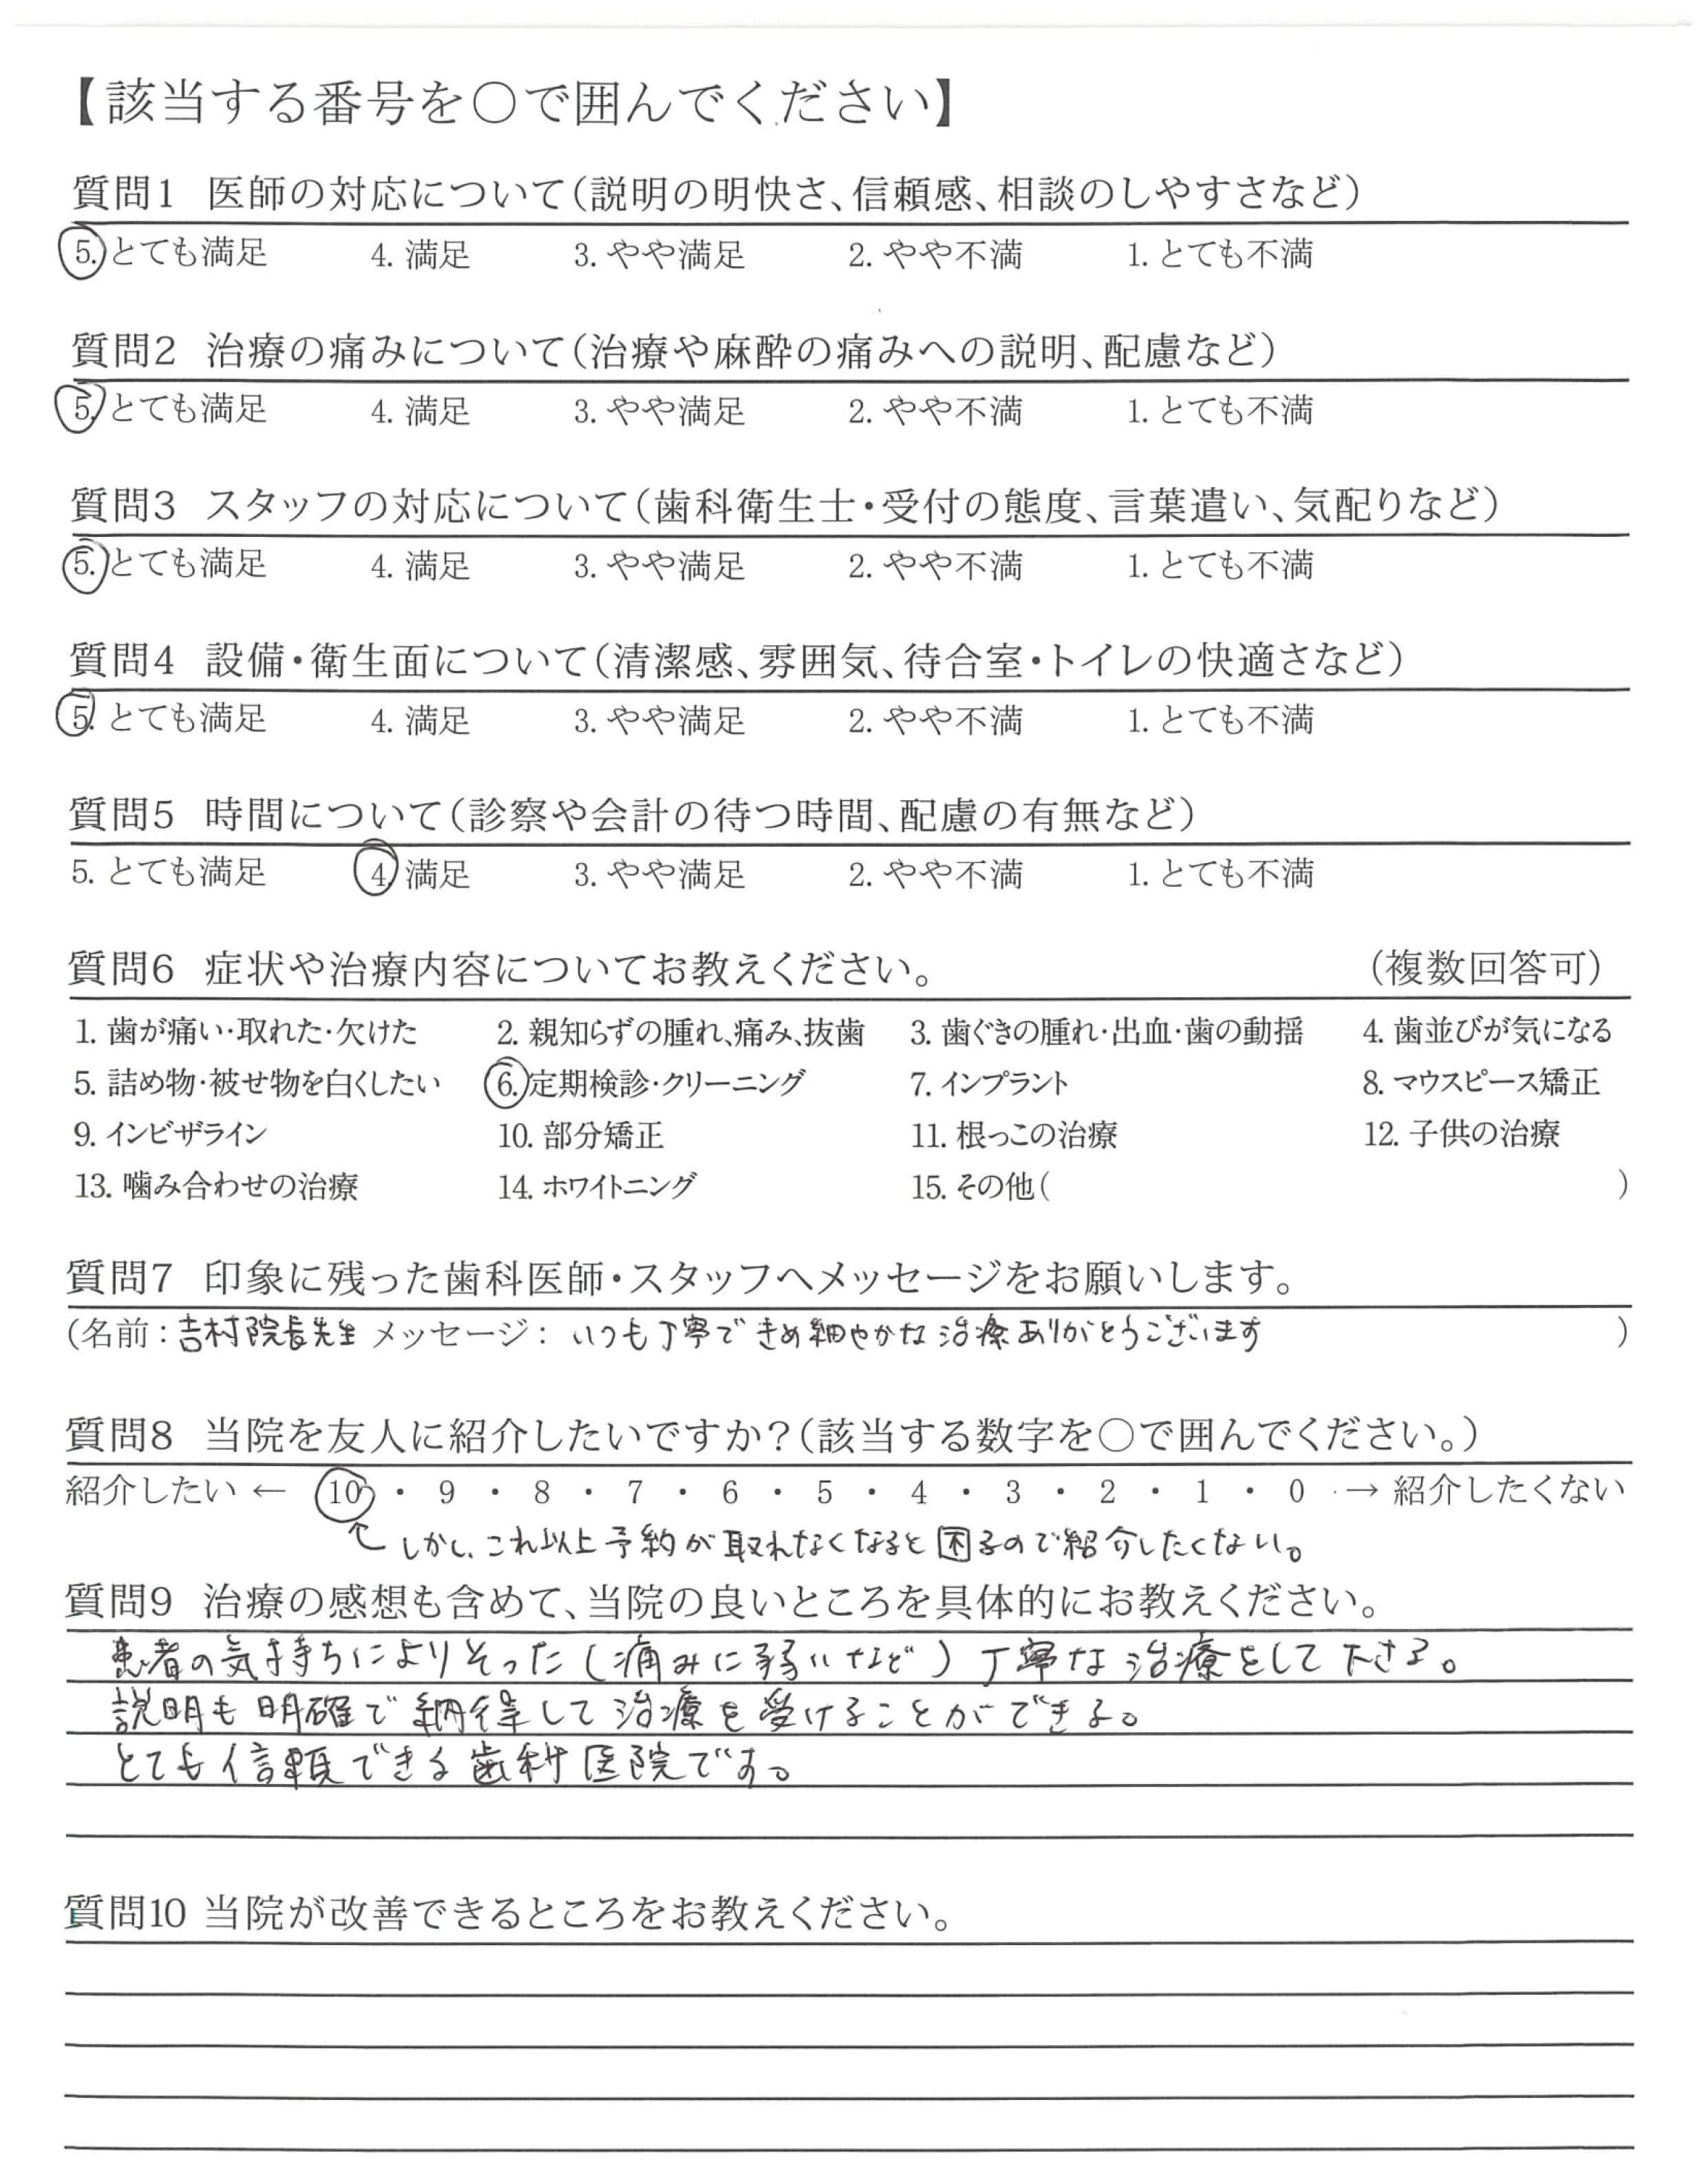 【該当する番号を○で囲んでください】
質問1 医師の対応について(説明の明快さ、信頼感、相談のしやすさなど)
5. とても満足 4. 満足 3. やや満足 2. やや不満 1. とても不満
質問2 治療の痛みについて(治療や麻酔の痛みへの説明、配慮など)
5. とても満足 4. 満足 3. やや満足 2. やや不満 1. とても不満
質問3 スタッフの対応について(歯科衛生士・受付の態度、言葉遣い、気配りなど)
5. とても満足 4. 満足 3. やや満足 2. やや不満 1. とても不満
質問4 設備・衛生面について(清潔感、雰囲気、待合室・トイレの快適さなど)
5. とても満足 4. 満足 3. やや満足 2. やや不満 1. とても不満
質問5 時間について(診察や会計の待つ時間、配慮の有無など)
5. とても満足 4. 満足 3. やや満足 2. やや不満 1. とても不満
質問6 症状や治療内容についてお教えください。 (複数回答可)
1. 歯が痛い・取れた・欠けた 2. 親知らずの腫れ、痛み、抜歯 3. 歯ぐきの腫れ・出血・歯の動揺 4. 歯並びが気になる
5. 詰め物・被せ物を白くしたい 6. 定期検診・クリーニング 7. インプラント 8. マウスピース矯正
9. インビザライン 10. 部分矯正 11. 根っこの治療 12. 子供の治療
13. 噛み合わせの治療 14. ホワイトニング 15. その他( )
質問7 印象に残った歯科医師・スタッフへメッセージをお願いします。
(名前：吉村院長先生 メッセージ： いつも丁寧できめ細やかな治療ありがとうございます )
質問8 当院を友人に紹介したいですか？(該当する数字を○で囲んでください。)
紹介したい ← 10 ・ 9 ・ 8 ・ 7 ・ 6 ・ 5 ・ 4 ・ 3 ・ 2 ・ 1 ・ 0 → 紹介したくない
しかし、これ以上予約が取れなくなると困るので紹介したくない。
質問9 治療の感想も含めて、当院の良いところを具体的にお教えください。
患者の気持ちによりそった(痛みに弱いなど)丁寧な治療をして下さる。
説明も明確で納得して治療を受けることができる。
とても信頼できる歯科医院です。
質問10 当院が改善できるところをお教えください。